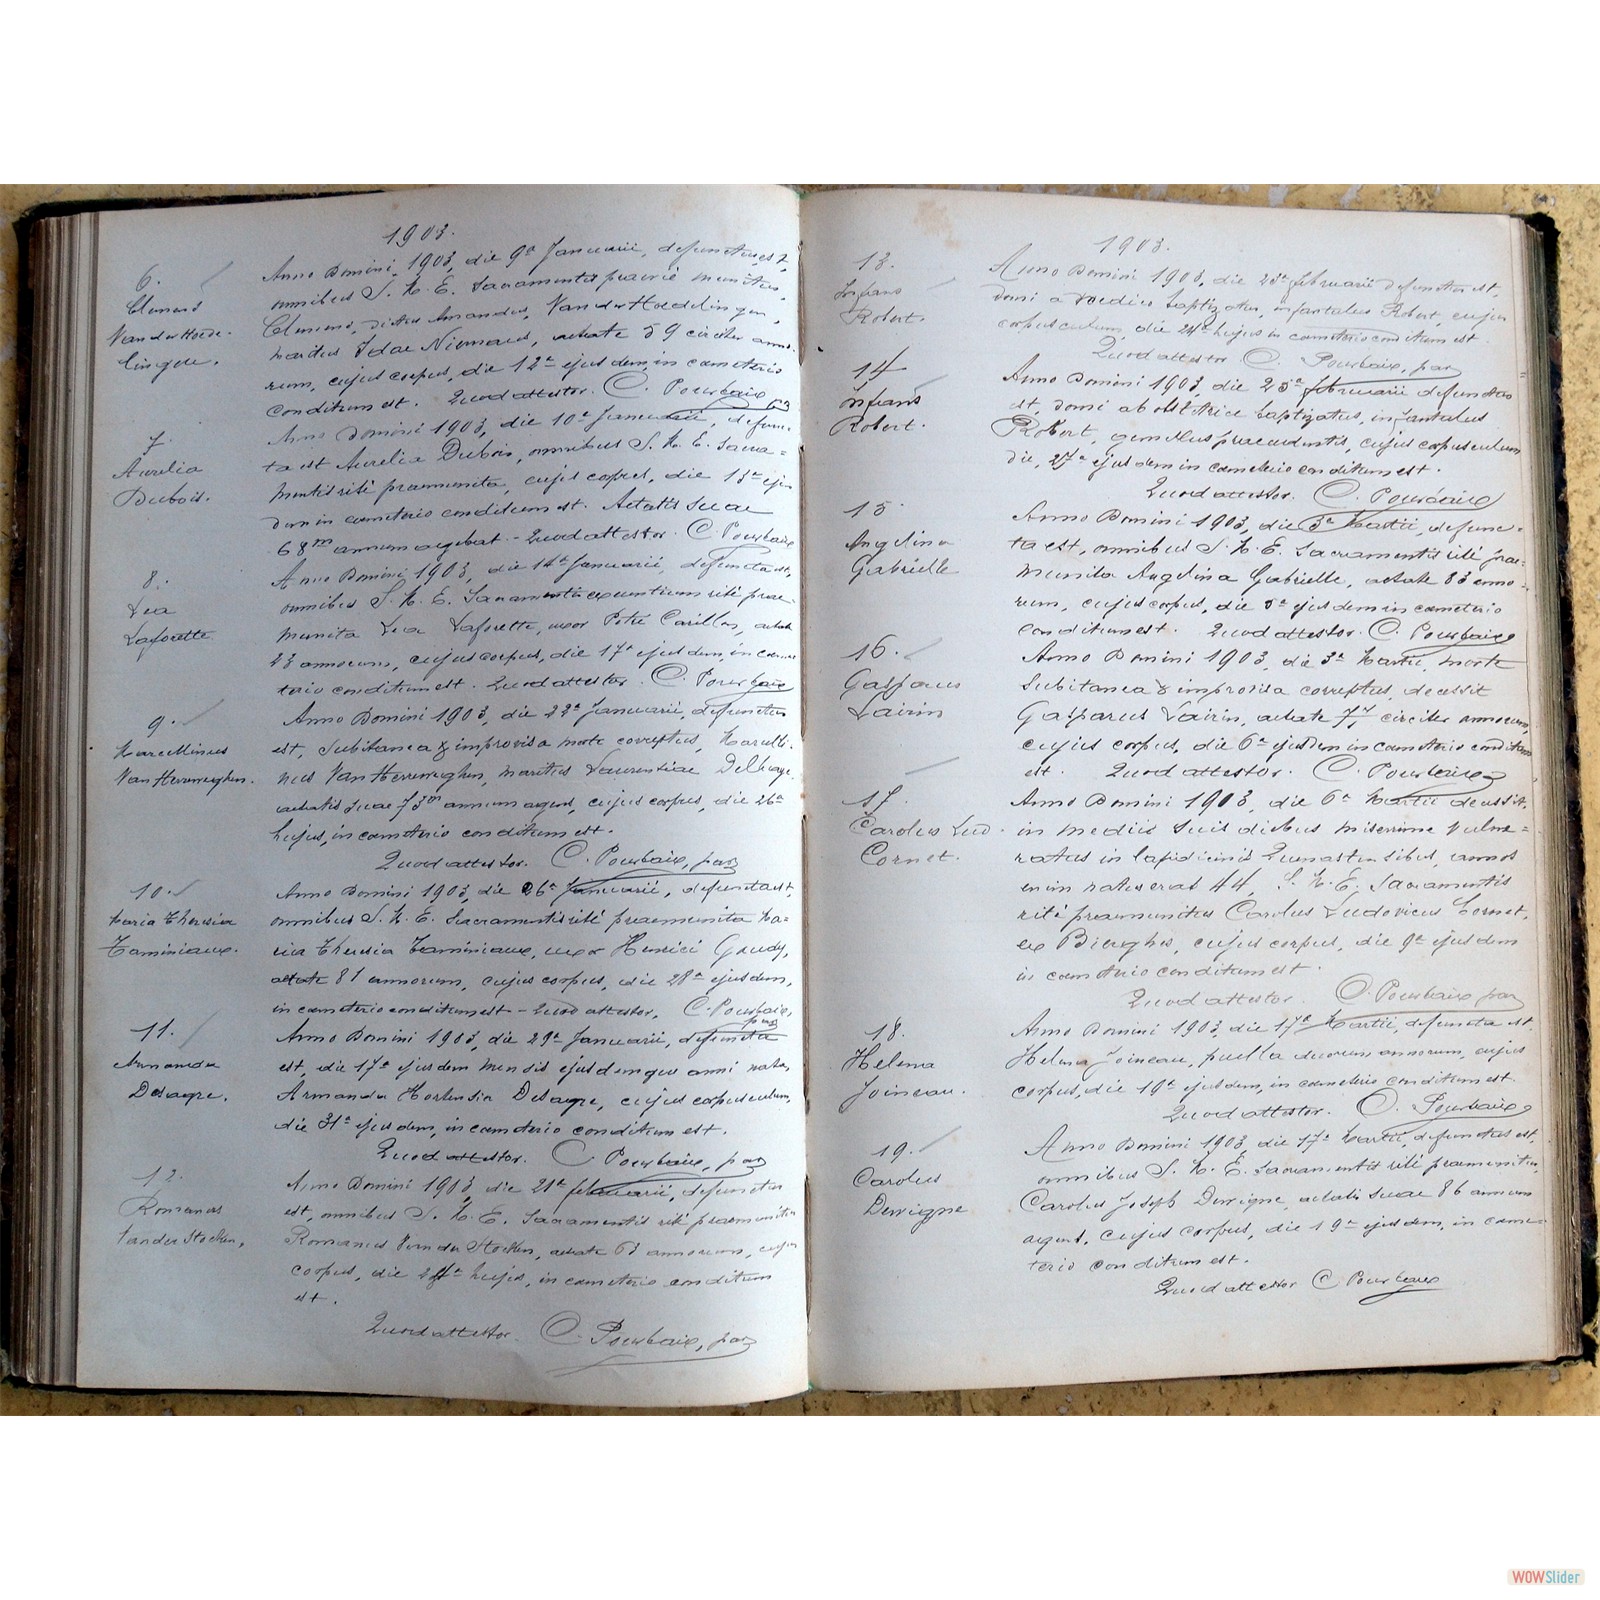 1903.
6.
Clemens
Van der Hoede-
lingen.
Anno Domini 1903, die 9a Januarii, defunctus est,
omnibus S. M. E. Sacramentis praevie munitus,
Clemens, dictus Amandus, Van der Hoedelingen,
maritus Idae Niemans, aetate 59 circiter anno-
rum, cujus corpus, die 12a ejusdem, in cameterio
conditum est. Quod attestor. C. Pourbaix
7.
Aurelia
Dubois.
Anno Domini 1903, die 10a Januarii, defunc-
ta est Aurelia Dubois, omnibus S. M. E. Sacra-
mentis ritè praemunita, cujus corpus, die 13a ejus-
dem in cameterio conditum est. Aetatis suae
68m annum agebat. - Quod attestor. C. Pourbaix
8.
Lea
Laforette
Anno Domini 1903, die 14a Januarii, defuncta est,
omnibus S. M. E. Sacramentis exeuntium ritè prae-
munita Lea Laforette, uxor Petri Carillon, aetate
23 annorum, cujus corpus, die 17a ejusdem, in came-
terio conditum est. Quod attestor. C. Pourbaix
9.
Marcellinus
Van Herreweghen.
Anno Domini 1903, die 22a Januarii, defunctus
est, subitanea & improvisa morte correptus, Marcelli-
nus Van Herreweghen, maritus Laurentiae Delhaye
aetatis suae 73m annum agens, cujus corpus, die 26a
hujus, in cameterio conditum est.
Quod attestor. C. Pourbaix, par
10.
Maria Theresia
Taminiaux.
Anno Domini 1903, die 26a Januarii, defuncta est,
omnibus S. M. E. Sacramentis ritè praemunita Ma-
ria Theresia Taminiaux, uxor Henrici Gondry,
aetate 81 annorum, cujus corpus, die 28a ejusdem,
in cameterio conditum est - Quod attestor, C. Pourbaix,
par
11.
Armanda
Desagre.
Anno Domini 1903, die 29a Januarii, defuncta
est, die 17a ejusdem mensis ejusdemque anni nata,
Armanda Hortensia Desagre, cujus corpusculum,
die 31a ejusdem, in cameterio conditum est.
Quod attestor. C Pourbaix, par
12.
Romanus
Vander Stocken,
Anno Domini 1903, die 21a februarii, defunctus
est, omnibus S. M. E. Sacramentis ritè praemunitus
Romanus Van der Stocken, aetate 63 annorum, cujus
corpus, die hujus, in cameterio conditum
est.
Quod attestor. C. Pourbaix, par
1903.
13.
Infans
Robert.
Anno Domini 1903, die 23a februarii defunctus est,
domi a medico baptizatus, infantulus Robert, cujus
corpusculum, die 24a hujus in cameterio conditum est.
Quod attestor C. Pourbaix, par
14
Infans
Robert.
Anno Domini 1903, die 25a februarii defunctus
est, domi ab obstetrice baptizatus, infantulus
Robert, gemellus praecedentis, cujus corpusculum
die, 27a ejusdem in cameterio conditum est.
Quod attestor. C. Pourbaix
15.
Angelina
Gabrielle
Anno Domini 1903, die 3a Martii, defunc-
ta est, omnibus S. M. E. Sacramentis ritè prae-
munita Angelina Gabrielle, aetate 83 anno-
rum, cujus corpus, die ejusdem in cameterio
conditum est. Quod attestor. C. Pourbaix
16.
Gasparus
Lairin
Anno Domini 1903, die 3a Martii, morte
subitanea & improvisa correptus, decessit
Gasparus Lairin, aetate 77 circiter annorum,
cujus corpus, die 6a ejusdem in cameterio conditum
est. Quod attestor. C. Pourbaix
17.
Carolus Lud.
Cornet.
Anno Domini 1903, die 6a Martii decessit,
in mediis suis diebus miserrime vulne-
ratus in lapidicinis Quenastensibus, annos
enim natus erat 44, S. M. E. Sacramentis
ritè praemunitus Carolus Ludovicus Cornet,
ex Bierghes, cujus corpus, die 9a ejusdem
in cameterio conditum est.
Quod attestor. C. Pourbaix par
18.
Helena
Joineau.
Anno Domini 1903, die 17a Martii, defuncta est,
Helena Joineau, puella duorum annorum, cujus
corpus, die 19a ejusdem, in cameterio conditum est.
Quod attestor. C. Pourbaix
19.
Carolus
Dervigne
Anno Domini 1903, die 17a Martii, defunctus est,
omnibus S. M. E. Sacramentis ritè praemunitus,
Carolus Joseph Dervigne, aetatis suae 86 annum
agens, cujus corpus, die 19a ejusdem, in came-
terio conditum est.
Quod attestor C Pourbaix
WOWSlider